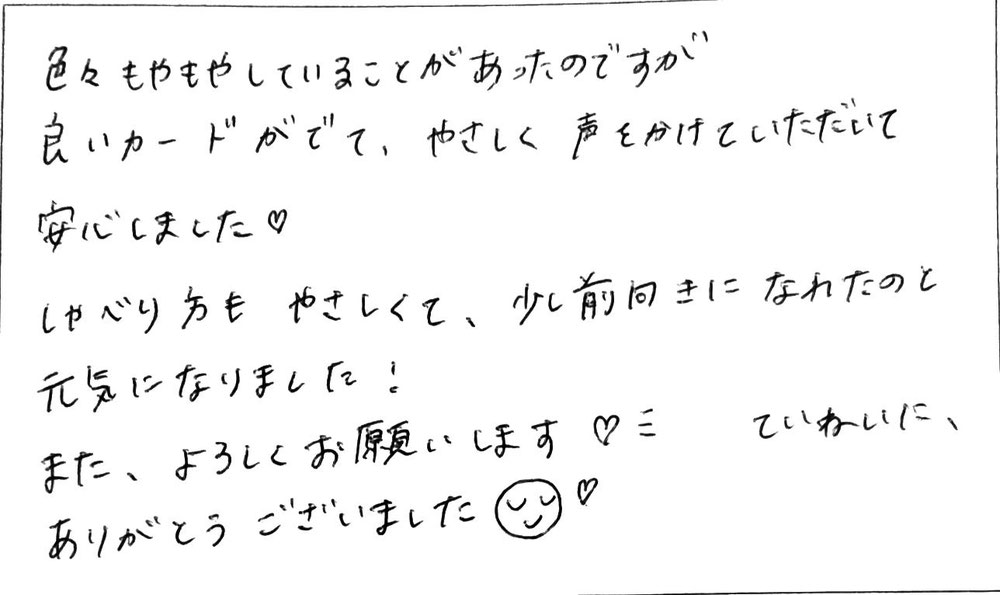 色々もやもやしていることがあったのですが
良いカードがでて、やさしく声をかけていただいて
安心しました♡
しゃべり方も やさしくて、少し前向きになれたのと
元気になりました!
また、よろしくお願いします♡ ていねいに、
ありがとうございました♡